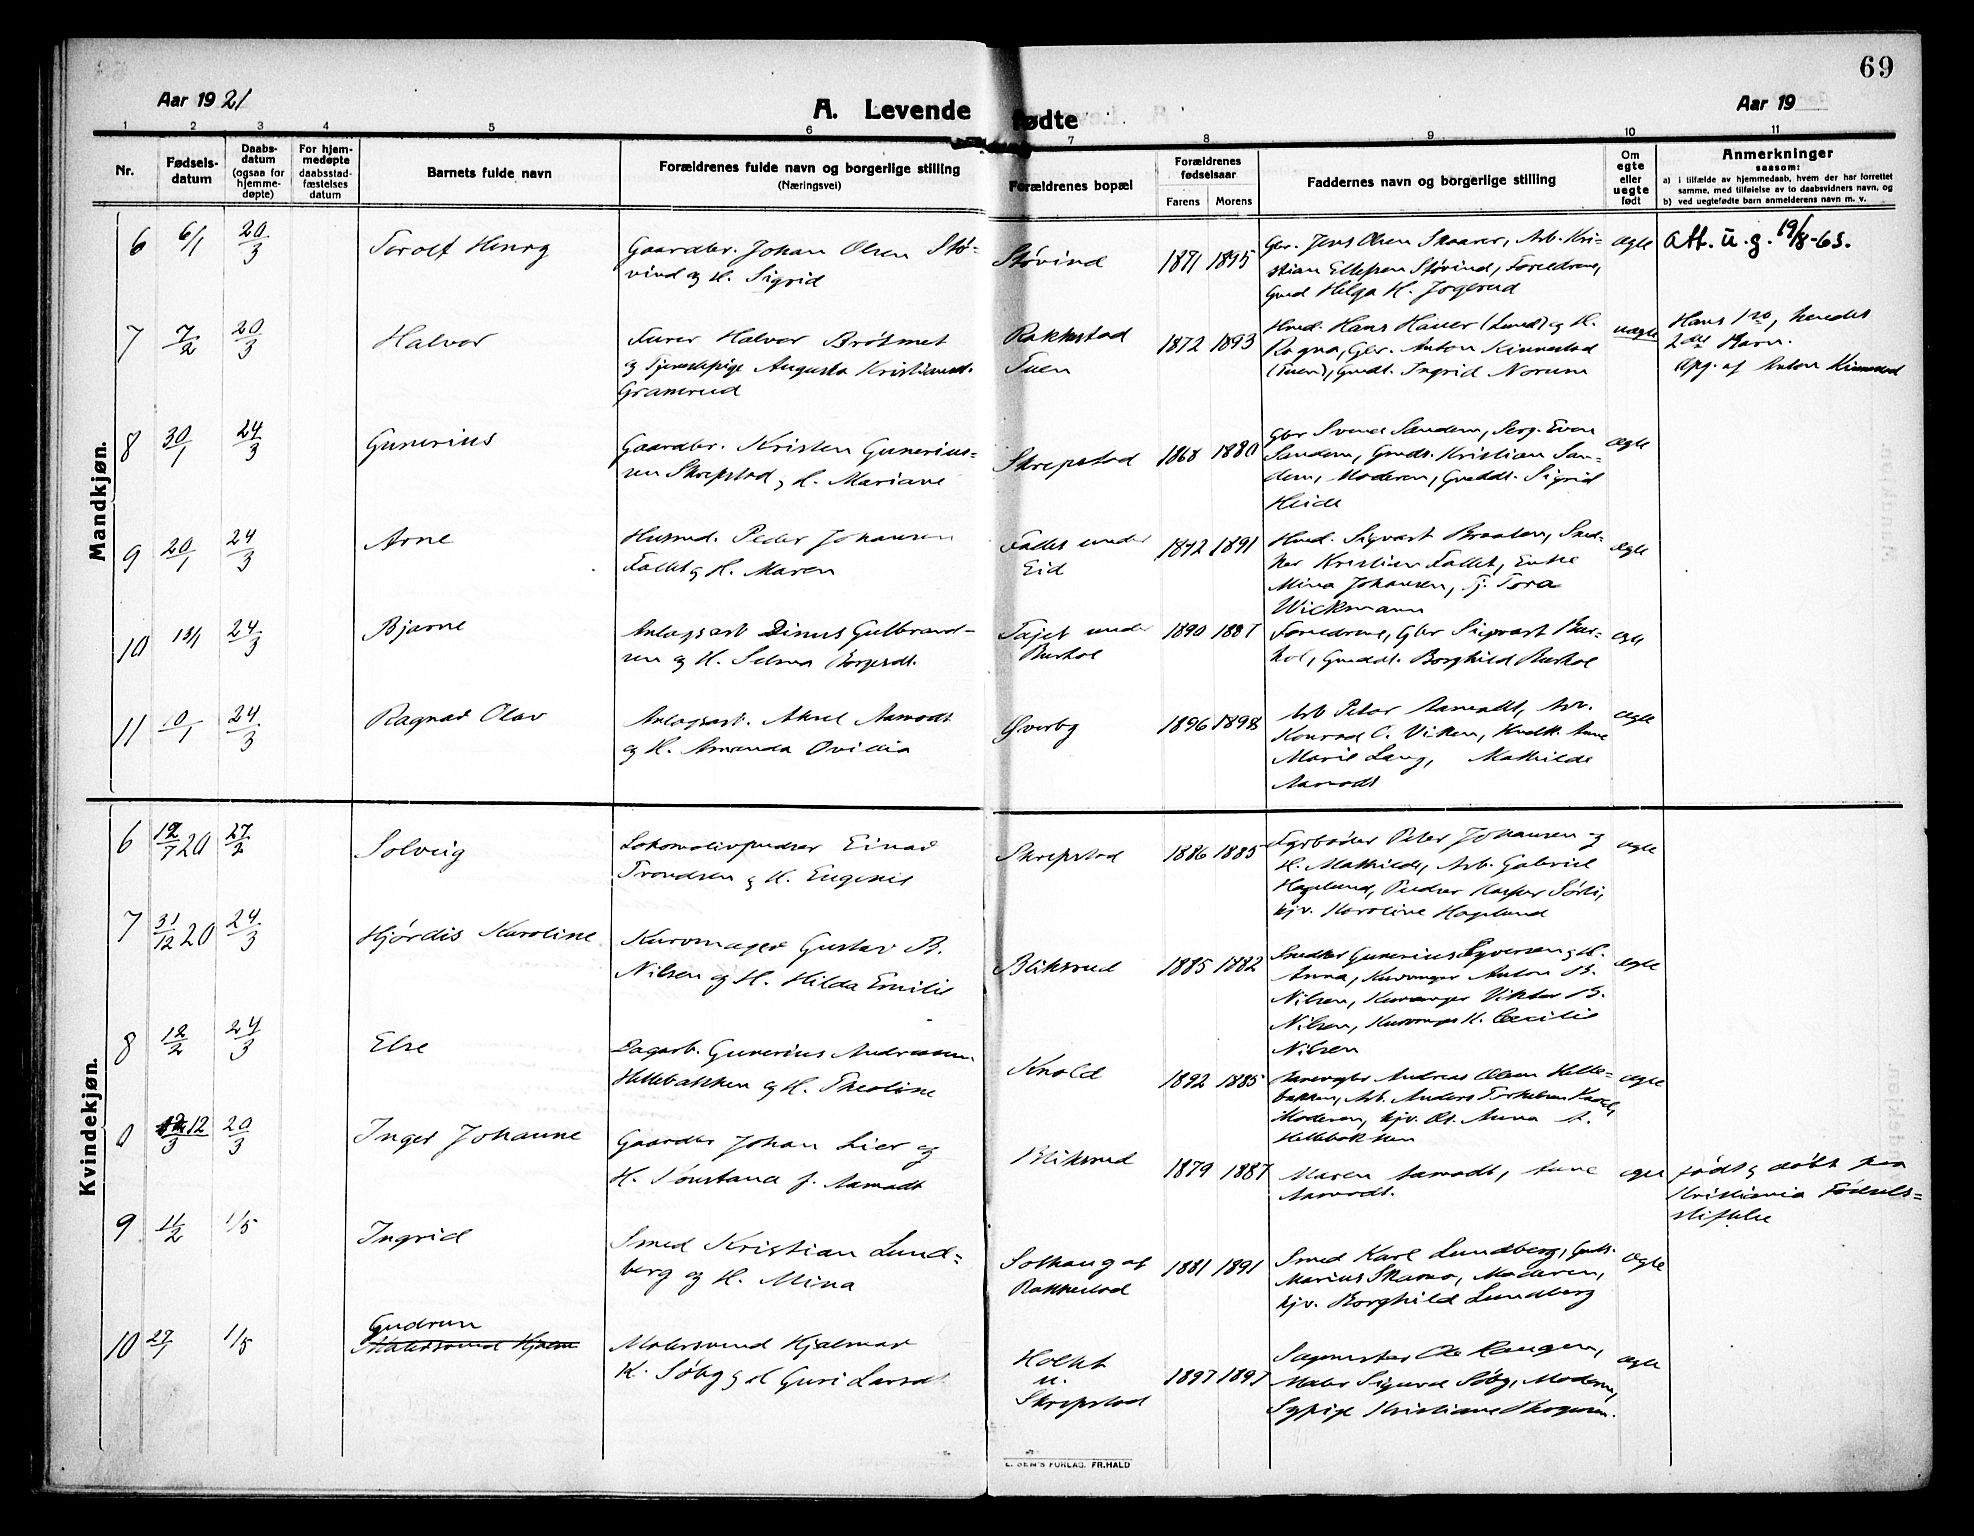 69
Aar 19 21
A. Levende fødte
Aar 19
1 2 3 4 5 6 7 8 9 10 11
Nr.
Fødsels-
datum
Daabs-
datum
(ogsaa for
hjemme-
døpte)
For hjem-
medøpte
daabsstad-
fæstelses
datum
Barnets fulde navn
Forældrenes fulde navn og borgerlige stilling
(Næringsvei)
Forældrenes bopæl
Forældrenes
fødselsaar
Farens Morens
Faddernes navn og borgerlige stilling
Om
egte
eller
uegte
født
Anmerkninger
saasom:
a) i tilfælde av hjemmedaab, hvem der har forrettet
samme, med tilføielse av to daabsvidners navn, og
b) ved uegtefødte barn anmelderens navn m. v.
Mandkjøn.
6 6/1 20/3 Torolf Henry
Gaardbr. Johan Olsen Stø-
vind og H. Sigrid
Støvind
1871 1895
Gbr. Jens Olsen Skaarer, Arb. Kri-
stian Ellefsen Støvind, Foreldrene,
Gmd Helga H. Joglerud
ægte
Att. u. g. 19/8-63.
7 7/2 20/3 Halvor
Furer Halvor Brötmet
og Tjenestepige Augusta Kristiansd.
Granerud
Rakkestad
Tuen
1872 1893
Hmd. Hans Hauer (Lund) og H.
Ragna, Gbr. Anton Kinnestad
(Tuen), Gmdt. Ingrid Norum
uægte
Hans 1ste, hendes
2det Barn.
Opg. af Anton Kinnestad
8 30/1 24/3 Gunerius
Gaardbr. Kristen Gunerius-
sen Skrepstad, H. Mariane
Skrepstad
1868 1880
Gbr Svend Sandem, Serg. Even
Sandem, Gmds. Kristian San-
dem, Moderen, Gmddt. Sigrid
Heide
ægte
9 20/1 24/3 Arne
Husmd. Peder Johansen
Fallet og H. Maren
Fallet under
Eid
1872 1891
Hmd. Sigvart Braaten, Sned-
ker Kristian Fallet, Enke
Mina Johansen, Tj. Tora
Wickmann
ægte
10 18/1 24/3 Bjarne
Anlagsarb. Dinus Gulbrand-
sen og H. Selma Borgersdt.
Tajet under
Buskol
1890 1887
Foreldrene, Gbr Sigvart Bus-
kol, Gmddt. Borghild Buskol
ægte
11 10/1 24/3 Ragnar Olav
Anlagsarb. Aksel Aamodt
og H. Amanda Ovidia
Øverby
1896 1898
Arb Peter Aamodt, Arb.
Konrad C. Vikken, Anne
Marie Lang, Mathilde
Aamodt
ægte
Kvindekjøn.
6 12/7 20 27/2 Solveig
Lokomotivpudser Einar
Trondsen og H. Eugenie
Skrepstad
1886 1885
Fyrbøder Peter Johansen og
H. Mathilde, Arb. Gabriel
Hagelund, Pudser Kasper Sørli,
kjv. Karoline Hagelund
ægte
7 31/12 20 24/3 Hjørdis Karoline
Kurvmager Gustav B.
Nilsen og H. Hilda Emilie
Bliksrud
1885 1882
Snedker Gunerius Syversen og H.
Anna, Kurvmager Anton B.
Nilsen, Kurvmager Viktor B.
Nilsen, Kurvmager H. Cecilie
Nilsen
ægte
8 12/2 24/3 Else
Dagarb. Gunerius Andreassen
Hellebakken og H. Theoline
Knold
1892 1885
Andreas Olsen Helle-
bakken, Arb. Anders Torkelsen
Moderen, kjv. Anna A.
Hellebakken
ægte
0 12/3 20/3 Inger Johanne
Gaardbr Johan Lier og
H. Konstana f. Aamodt
Bliksrud
1879 1887
Maren Aamodt, Anne
Aamodt.
ægte
født og døbt paa
Kristiania Fødsels-
stiftelse
9 11/2 1/5 Ingrid
Smed Kristian Lund-
berg og H. Mina
Solhaug af
Rakkestad
1881 1891
Smed Karl Lundberg,
Marius Skaara, Moderen,
kjv. Borghild Lundberg
ægte
10 27/1 1/5 Gudrun
Malersvend Hjalm
Malersvend Hjalmar
K. Søby og H Guri Larsdt
Holtet
u.
Skrepstad
1897 1897
Sagmester Ole Haugen,
Maler Sigurd Søby, Moderen,
Sypige Kristiane
ægte
FORLAG. FR.HALD